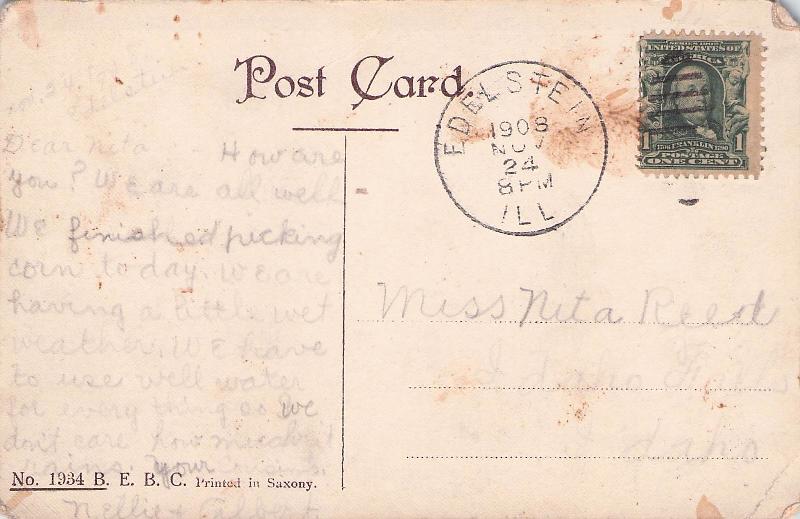 Post Card.
EDELSTEIN
1908
NOV
24
8 PM
ILL
SERIES 1902
UNITED STATES OF
AMERICA
1 FRANKLIN 1
POSTAGE
ONE CENT
Nov. 24
Edelstein
Dear Nita How are
you? We are all well
We finished picking
corn to day. We are
having a little wet
weather. We have
to use well water
for every thing so we
don't care how much it
rains. your cousins,
Nellie + Albert
Miss Nita Reed
Idaho Falls
Idaho
No. 1934 B. E. B. C. Printed in Saxony.